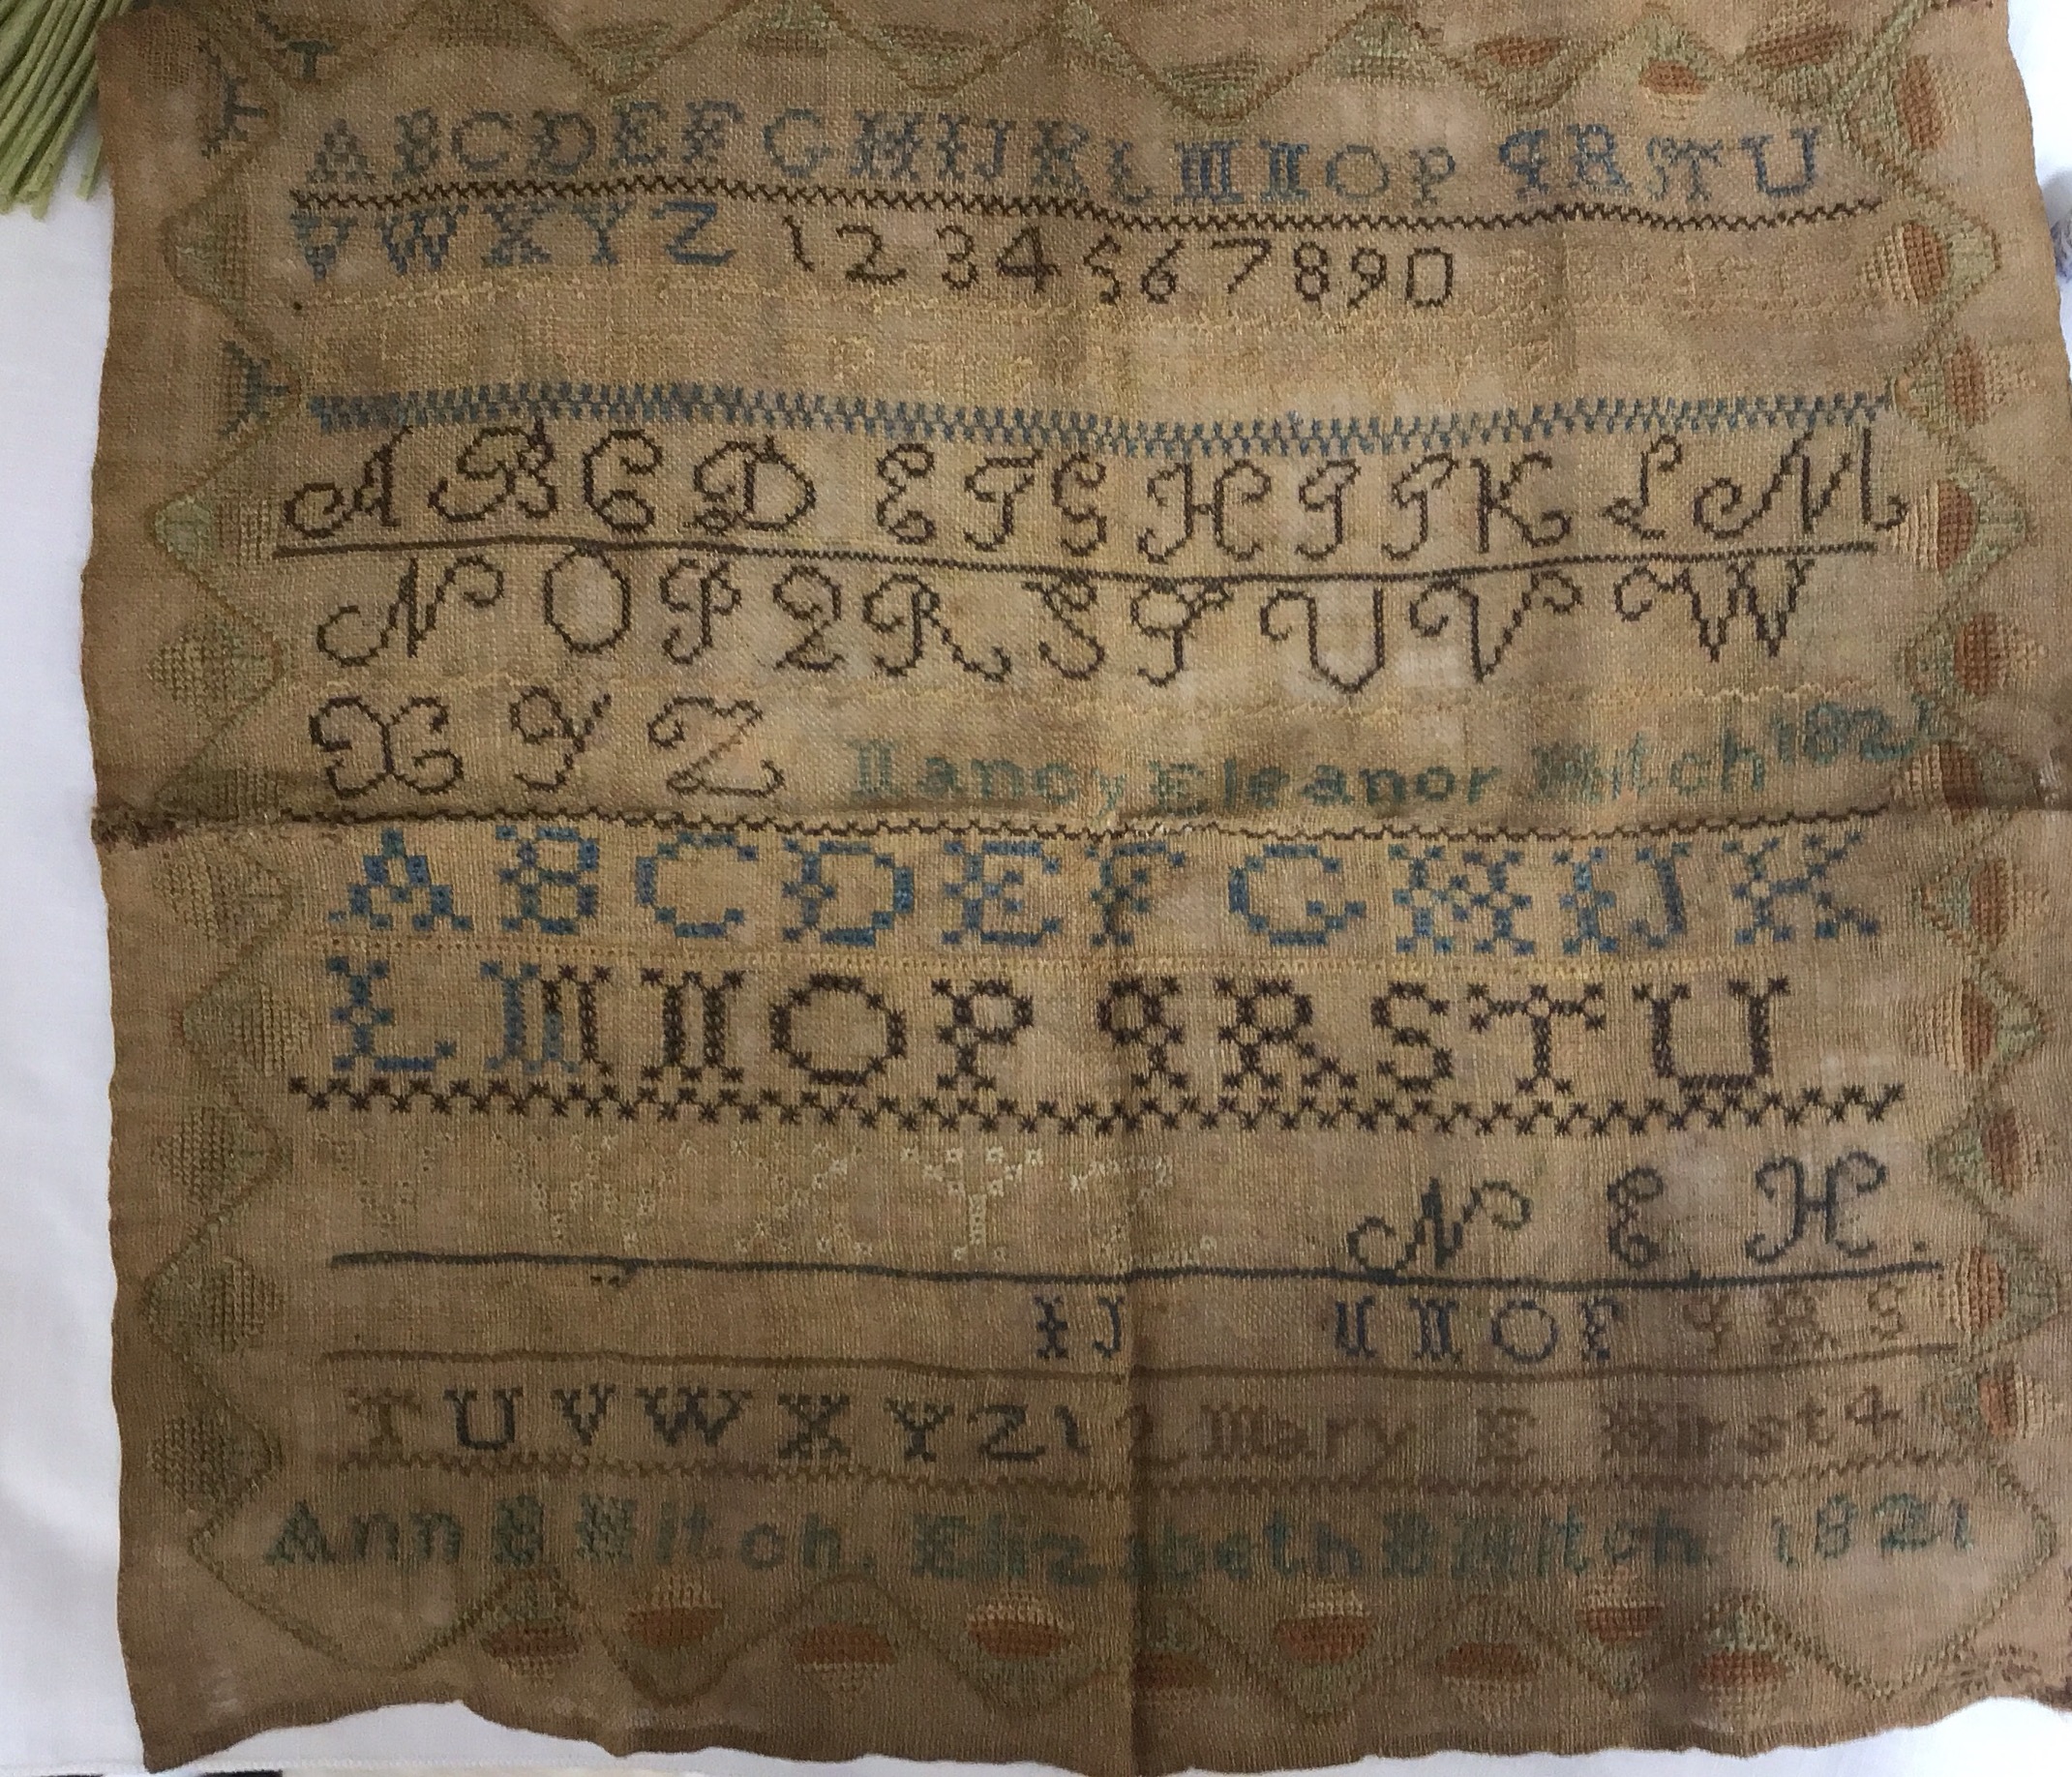 A B C D E F G H I J K L M N O P Q R S T U
V W X Y Z 1 2 3 4 5 6 7 8 9 0
A B C D E F G H I J K L M
N O P Q R S T U V W
X Y Z Nancy Eleanor Hitch 1821
A B C D E F G H I J K
L M N O P Q R S T U
V W X Y Z N E H.
I J N O P Q R S
T U V W X Y Z 1 2 Mary E Hirst
Ann B Hitch. Elizabeth B Hitch 1821